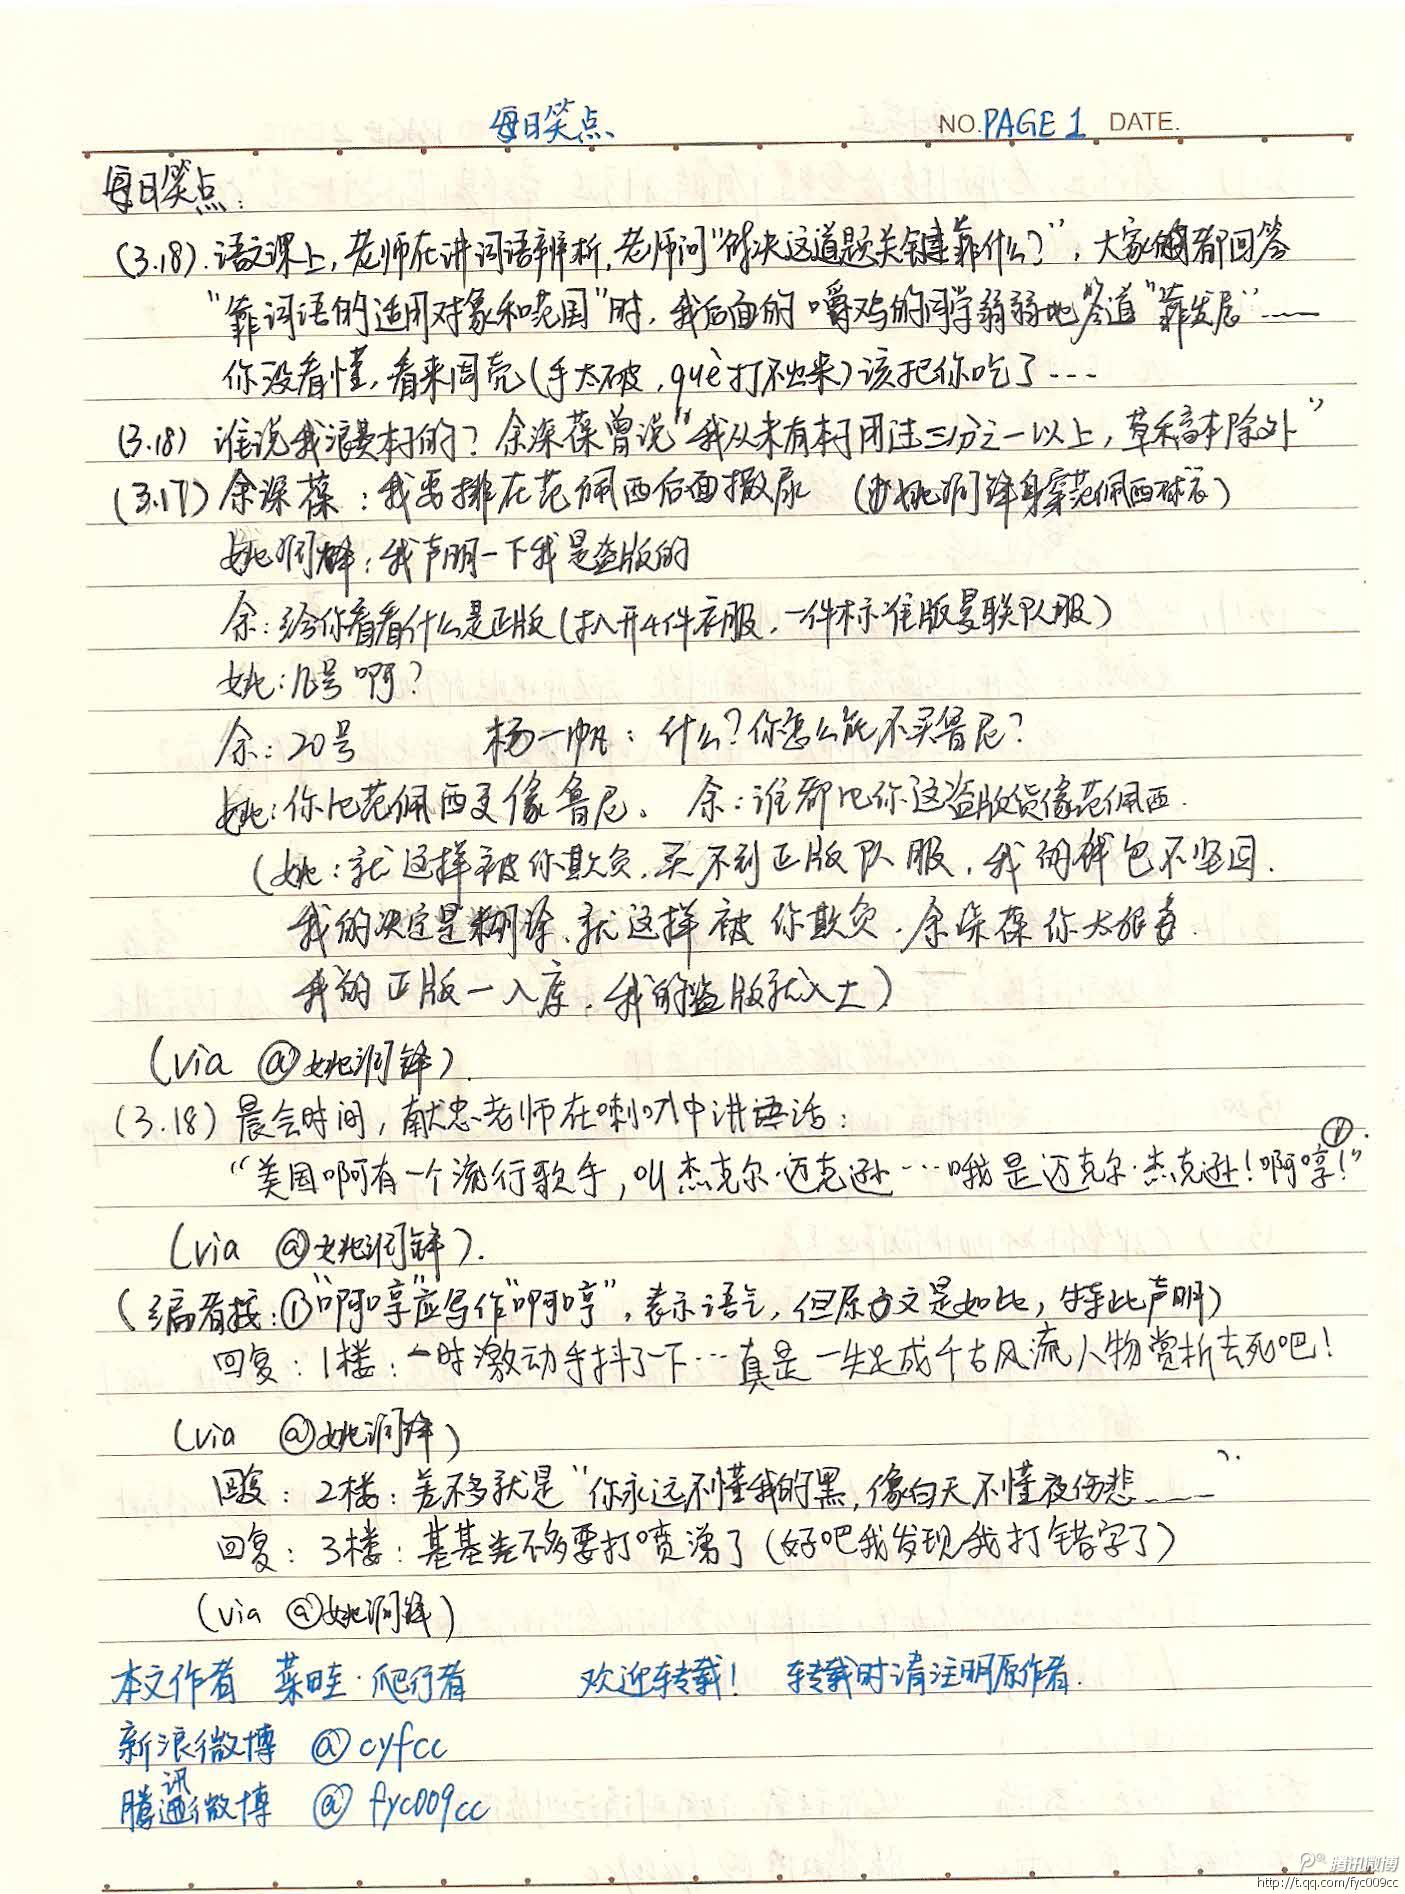 每日笑点
NO. PAGE 1 DATE.
每日笑点:
(3.18).语文课上,老师在讲词语辨析,老师问"解决这道题关键靠什么?",大家都回答
"靠词语的适用对象和范围"时,我后面的嚼鸡的同学弱弱地答道"靠发尽"……
你没看懂,看来周亮(手太破,què打不出来)该把你吃了…
(3.18) 谁说我浪费本的?余深葆曾说"我从未有本子用过三分之一以上,草稿本除外"
(3.17)余深葆:我要排在范佩西后面撒尿 (姚润锋身穿范佩西球衣)
姚润锋:我声明一下我是盗版的
余:给你看看什么是正版(扒开4件衣服,一件标准版曼联队服)
姚:几号啊?
余:20号 杨一帆:什么?你怎么能不买鲁尼?
姚:你比范佩西更像鲁尼。 余:谁都比你这盗版货像范佩西.
(姚:就这样被你欺负,买不到正版队服,我的钱包不坚固.
我的决定是糊涂,就这样被你欺负,余深葆你太狠毒.
我的正版一入库,我的盗版就入土)
(via @姚润锋).
(3.18)晨会时间,献忠老师在喇叭中讲话:
"美国啊有一个流行歌手,叫杰克尔·迈克逊…哦是迈克尔·杰克逊!啊啍!"①.
(via @姚润锋).
(编者按:①"啊啍"应写作"啊哼",表示语气,但原文是如此,特此声明)
回复:1楼:一时激动手抖了一下…真是一失足成千古风流人物赏析去死吧!
(via @姚润锋)
回复:2楼:差不多就是"你永远不懂我的黑,像白天不懂夜伤悲……".
回复:3楼:基基差不多要打喷涕了(好吧我发现我打错字了)
(via @姚润锋)
本文作者 菜畦·爬行者 欢迎转载! 转载时请注明原作者.
新浪微博 @cyfcc
腾讯微博 @fyc009cc
腾讯微博
http://t.qq.com/fyc009cc